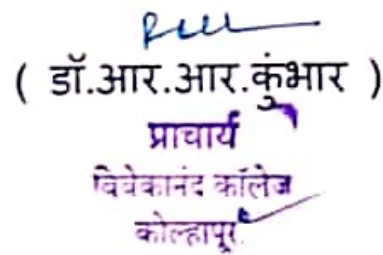 ( डॉ.आर.आर.कुंभार )
प्राचार्य
विवेकानंद कॉलेज
कोल्हापूर.